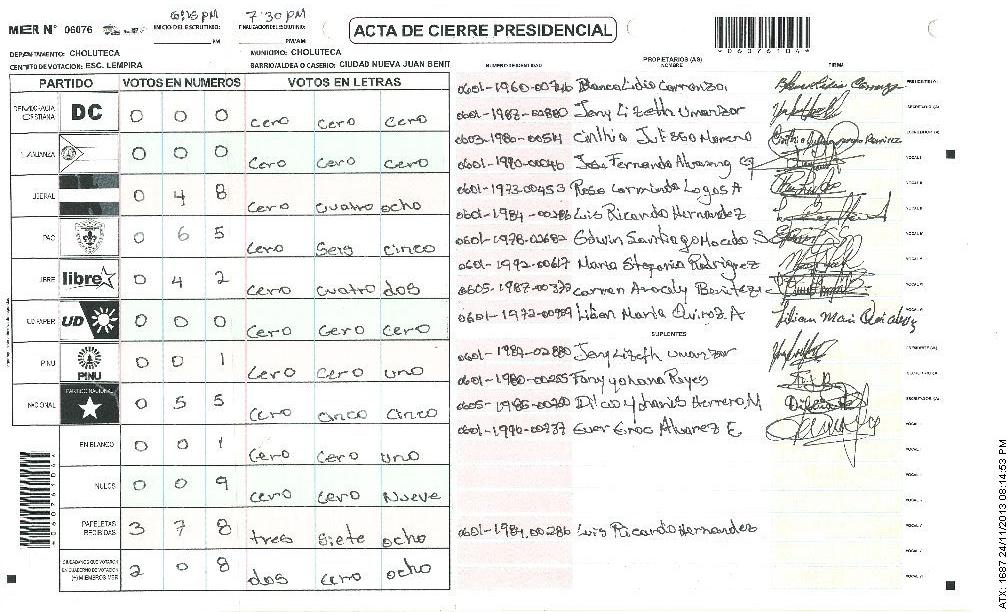 6:15 PM 7:30 PM
MER Nº 06076 INICIO DEL ESCRUTINIO: FINALIZACION DEL ESCRUTINIO: ACTA DE CIERRE PRESIDENCIAL
PM PM/AM
DEPARTAMENTO: CHOLUTECA MUNICIPIO: CHOLUTECA
CENTRO DE VOTACION: ESC. LEMPIRA BARRIO/ALDEA O CASERIO: CIUDAD NUEVA JUAN BENIT
PROPIETARIOS (AS)
NUMERO DE IDENTIDAD NOMBRE FIRMA
PARTIDO VOTOS EN NUMEROS VOTOS EN LETRAS
DEMOCRACIA CRISTIANA DC 0 0 0 cero cero cero
ALIANZA 0 0 0 cero cero cero
LIBERAL 0 4 8 cero cuatro ocho
PAC 0 6 5 cero seis cinco
LIBRE libre 0 4 2 cero cuatro dos
UD FAPER UD 0 0 0 cero cero cero
PINU PINU 0 0 1 cero cero uno
NACIONAL PARTIDO NACIONAL 0 5 5 cero cinco cinco
EN BLANCO 0 0 1 cero cero uno
NULOS 0 0 9 cero cero nueve
PAPELETAS RECIBIDAS 3 7 8 tres siete ocho
CIUDADANOS QUE VOTARON EN CUADERNO DE VOTACION (+) MIEMBROS MER 2 0 8 dos cero ocho
Blanca Lidia Carranza
0601-1987-02880 Jeny Lizeth Umanzor
Cinthia Moreno
Jose Fernando
0601-1973-00453 Rosa Carminda Lagos A
0601-1984-00286 Luis Ricardo Hernandez
Edwin Santiago
0601-1992-00617 Maria Stefania Rodriguez
Carmen Aracely Benitez
Lilian Maria Quiroz A
SUPLENTES
0601-1987-02880 Jeny Lizeth Umanzor
0601-1980-00255 Fany Yohana Reyes
Herrera M
Alvarez E
0601-1984-00286 Luis Ricardo Hernandez
ATX: 1687 24/11/2013 08:14:53 PM